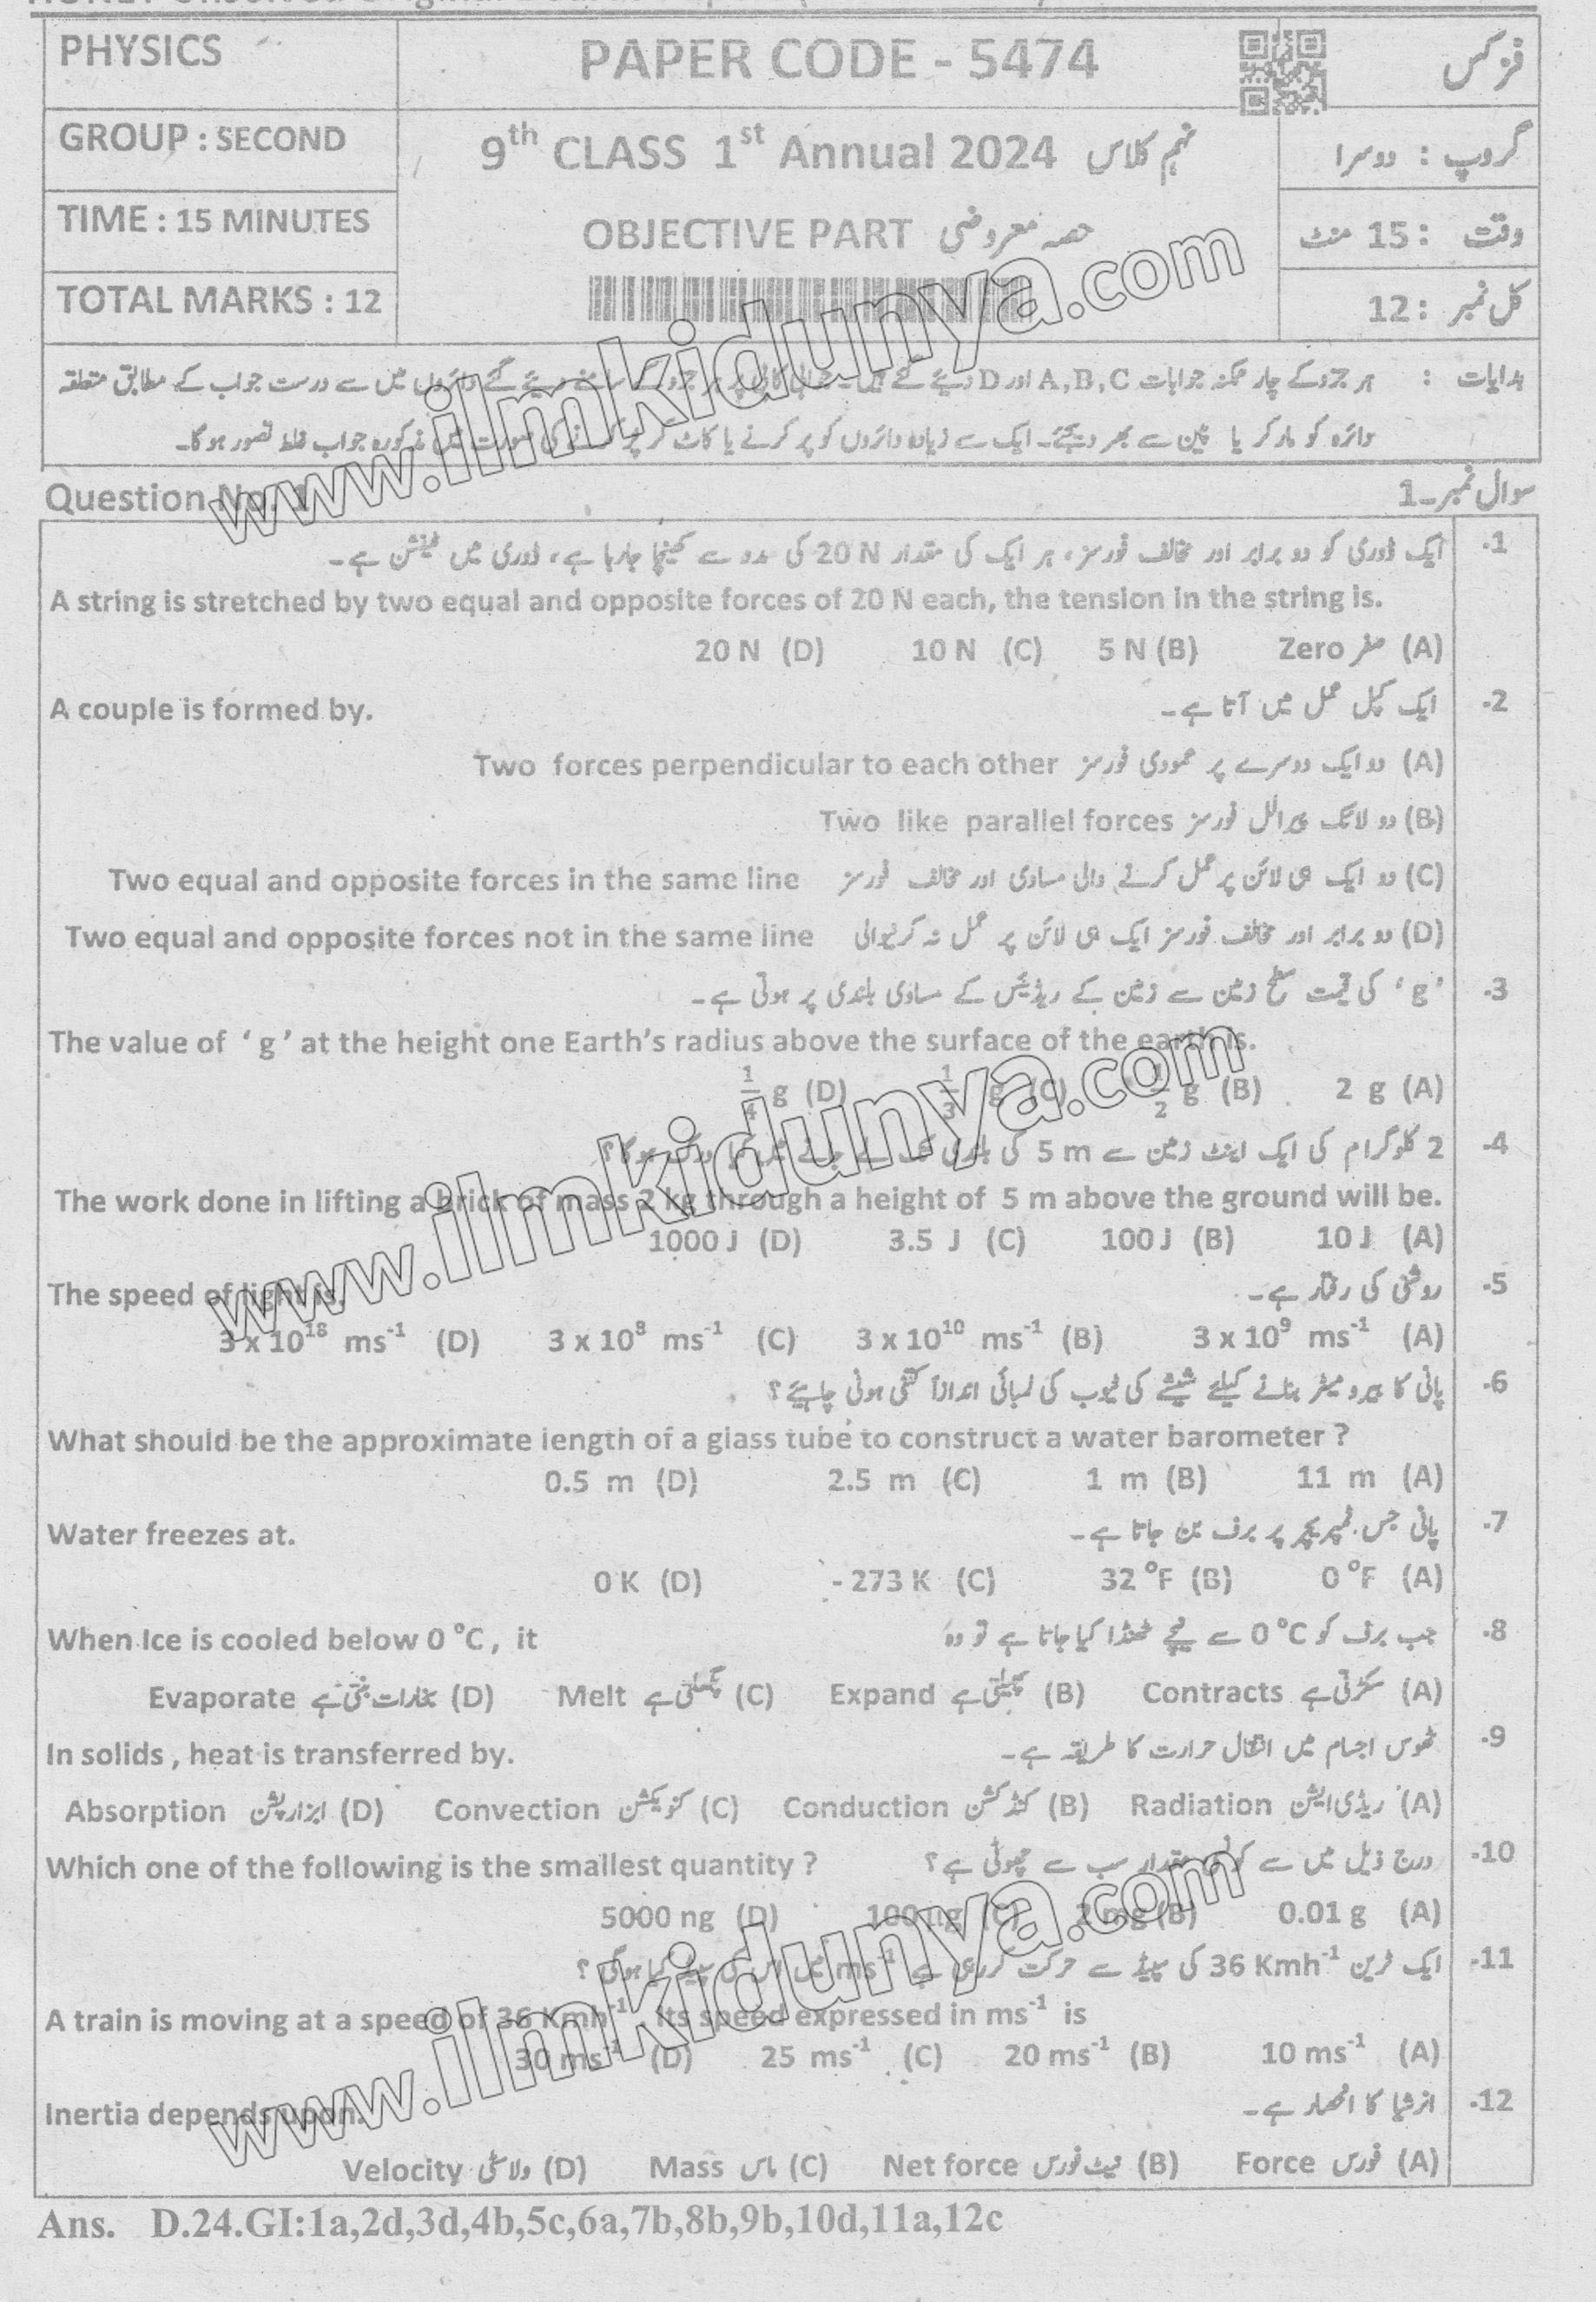 PHYSICS
PAPER CODE - 5474
فزکس
GROUP : SECOND
9th CLASS 1st Annual 2024 نہم کلاس
گروپ : دوسرا
TIME : 15 MINUTES
OBJECTIVE PART حصہ معروضی
وقت : 15 منٹ
TOTAL MARKS : 12
کل نمبر : 12
ہدایات : ہر جزو کے چار ممکنہ جوابات A,B,C اور D دیئے گئے ہیں۔ جوابی کاپی پر ہر جزو کے سامنے دیئے گئے دائروں میں سے درست جواب کے مطابق متعلقہ
دائرہ کو مارکر یا پین سے بھر دیجئے۔ ایک سے زیادہ دائروں کو پر کرنے یا کاٹ کر پر کرنے کی صورت میں مذکورہ جواب غلط تصور ہوگا۔
Question No. 1 سوال نمبر۔1
1- ایک ڈوری کو دو برابر اور مخالف فورسز، ہر ایک کی مقدار 20 N کی مدد سے کھینچا جارہا ہے، ڈوری میں ٹینشن ہے۔
A string is stretched by two equal and opposite forces of 20 N each, the tension in the string is.
(A) صفر Zero (B) 5 N (C) 10 N (D) 20 N
2- ایک کپل عمل میں آتا ہے۔ A couple is formed by.
(A) دو ایک دوسرے پر عمودی فورسز Two forces perpendicular to each other
(B) دو لائک پیرالل فورسز Two like parallel forces
(C) دو ایک ہی لائن پر عمل کرنے والی مساوی اور مخالف فورسز Two equal and opposite forces in the same line
(D) دو برابر اور مخالف فورسز ایک ہی لائن پر عمل نہ کرنیوالی Two equal and opposite forces not in the same line
3- 'g' کی قیمت سطح زمین سے زمین کے ریڈیئس کے مساوی بلندی پر ہوتی ہے۔
The value of ‘ g ’ at the height one Earth’s radius above the surface of the earth is.
(A) 2 g (B) 1/2 g (C) 1/3 g (D) 1/4 g
4- 2 کلوگرام کی ایک اینٹ زمین سے 5 m کی بلندی تک لے جانے میں کیا ورک ہوگا؟
The work done in lifting a brick of mass 2 kg through a height of 5 m above the ground will be.
(A) 10 J (B) 100 J (C) 3.5 J (D) 1000 J
5- روشنی کی رفتار ہے۔ The speed of light is.
(A) 3 x 10⁹ ms⁻¹ (B) 3 x 10¹⁰ ms⁻¹ (C) 3 x 10⁸ ms⁻¹ (D) 3 x 10¹⁸ ms⁻¹
6- پانی کا بیرومیٹر بنانے کیلئے شیشے کی ٹیوب کی لمبائی اندازاً کتنی ہونی چاہیئے؟
What should be the approximate length of a glass tube to construct a water barometer ?
(A) 11 m (B) 1 m (C) 2.5 m (D) 0.5 m
7- پانی جس ٹمپریچر پر برف بن جاتا ہے۔ Water freezes at.
(A) 0 °F (B) 32 °F (C) - 273 K (D) 0 K
8- جب برف کو 0 °C سے نیچے ٹھنڈا کیا جاتا ہے تو وہ When Ice is cooled below 0 °C , it
(A) سکڑتی ہے Contracts (B) پھیلتی ہے Expand (C) پگھلتی ہے Melt (D) بخارات بنتی ہے Evaporate
9- ٹھوس اجسام میں انتقال حرارت کا طریقہ ہے۔ In solids , heat is transferred by.
(A) ریڈی ایشن Radiation (B) کنڈکشن Conduction (C) کنویکشن Convection (D) ابزارپشن Absorption
10- درج ذیل میں سے کونسی مقدار سب سے چھوٹی ہے؟ Which one of the following is the smallest quantity ?
(A) 0.01 g (B) 2 mg (C) 100 µg (D) 5000 ng
11- ایک ٹرین 36 Kmh⁻¹ کی سپیڈ سے حرکت کررہی ہے ms⁻¹ میں اس کی سپیڈ کیا ہوگی؟
A train is moving at a speed of 36 Kmh⁻¹ . Its speed expressed in ms⁻¹ is
(A) 10 ms⁻¹ (B) 20 ms⁻¹ (C) 25 ms⁻¹ (D) 30 ms⁻¹
12- انرشیا کا انحصار ہے۔ Inertia depends upon.
(A) فورس Force (B) نیٹ فورس Net force (C) ماس Mass (D) ولاسٹی Velocity
Ans. D.24.GI:1a,2d,3d,4b,5c,6a,7b,8b,9b,10d,11a,12c
www.ilmkidunya.com
www.ilmkidunya.com
www.ilmkidunya.com